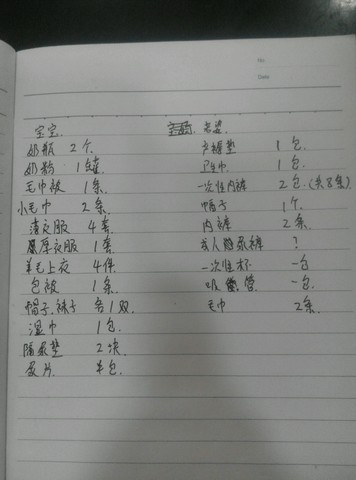 No
Date
宝宝. 老婆
奶瓶 2个 产褥垫 1包.
奶粉 1罐 卫生巾 1包.
毛巾被 1条. 一次性内裤 2包.(共8条)
小毛巾 2条. 帽子 1个
薄衣服 4套 内裤 2条.
厚衣服 1套 成人尿裤 ?
羊毛上衣 4件 一次性杯 一包
包被 1条 吸管 一包.
帽子.袜子 各1双. 毛巾 2条.
湿巾 1包.
隔尿垫 2块
尿片 半包.